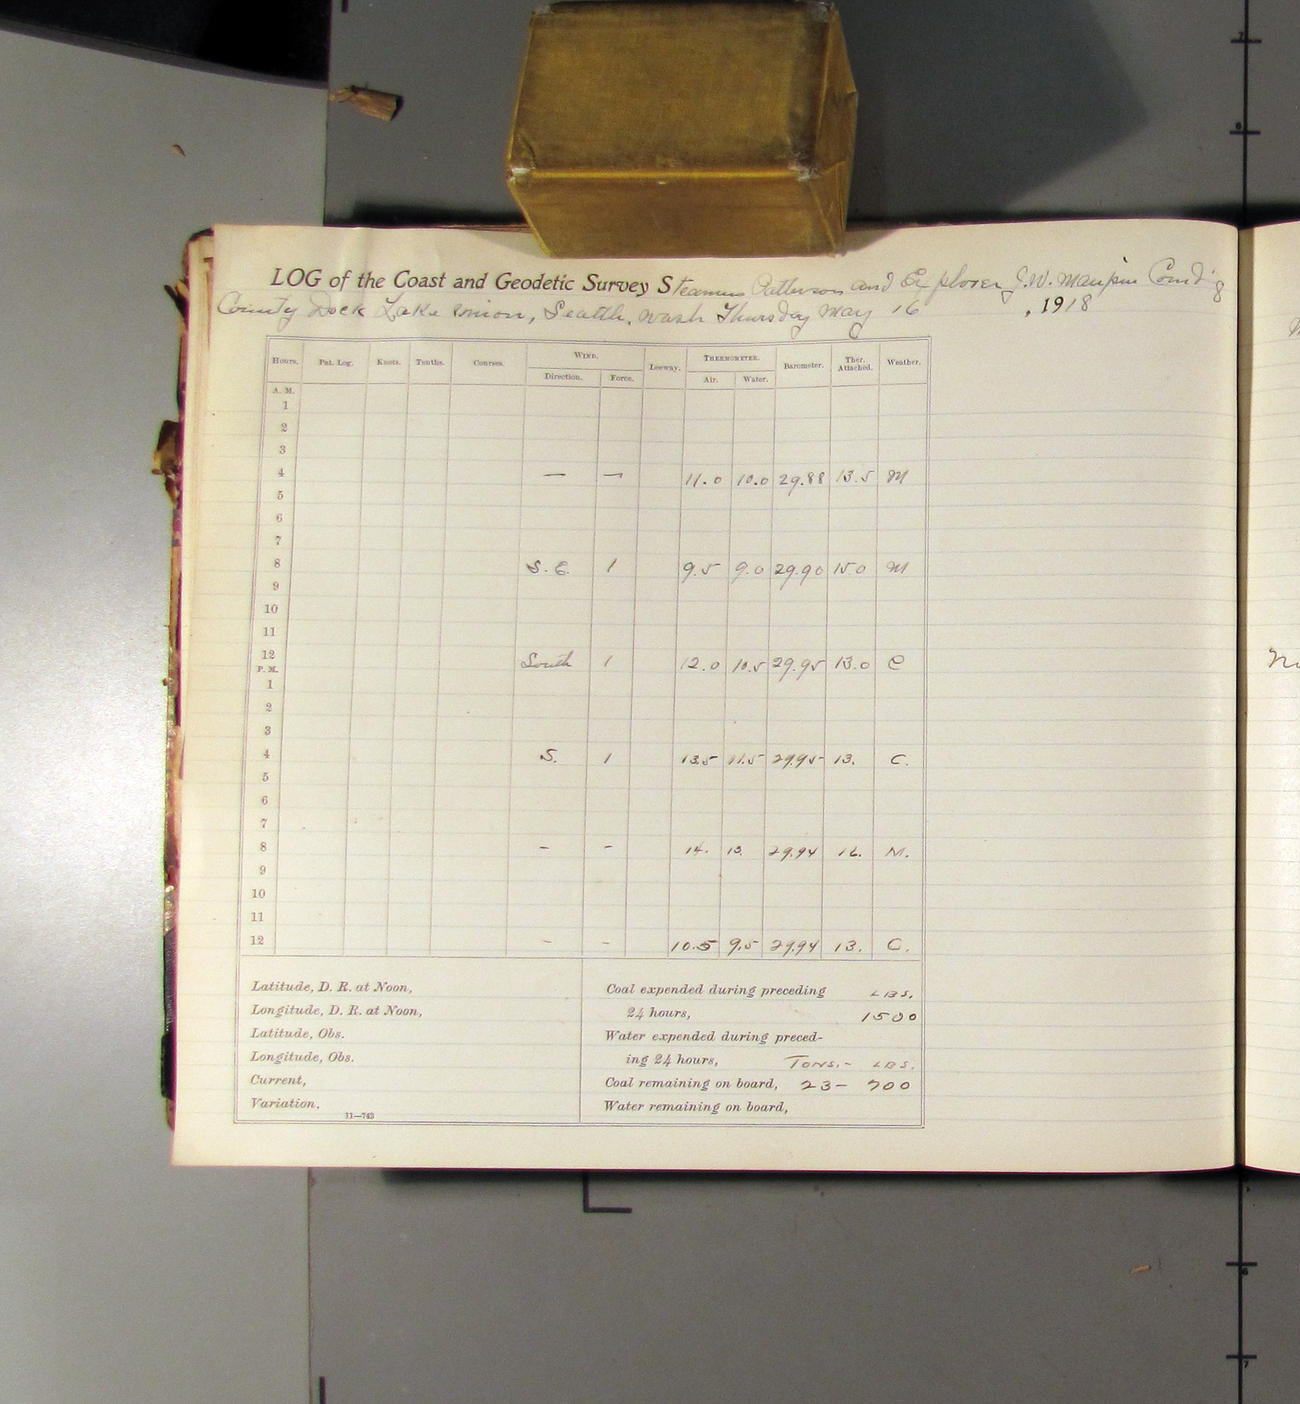 LOG of the Coast and Geodetic Survey Steamers Patterson and Explorer J.W. Maupin Comd'g
County Dock Lake Union, Seattle, Wash Thursday May 16, 1918
Hours. Pat. Log. Knots. Tenths. Courses. WIND. Leeway. THERMOMETER. Barometer. Ther. Attached. Weather.
Direction. Force. Air. Water.
A. M.
1
2
3
4 — — 11.0 10.0 29.88 13.5 M
5
6
7
8 S. E. 1 9.5 9.0 29.90 15.0 M
9
10
11
12 South 1 12.0 10.5 29.95 13.0 C
P. M.
1
2
3
4 S. 1 13.5 11.5 29.95 13. C.
5
6
7
8 – – 14. 13. 29.94 16. M.
9
10
11
12 – – 10.5 9.5 29.94 13. C.
Latitude, D. R. at Noon,
Longitude, D. R. at Noon,
Latitude, Obs.
Longitude, Obs.
Current,
Variation.
11—743
Coal expended during preceding LBS.
24 hours, 1500
Water expended during preced-
ing 24 hours, TONS.- LBS.
Coal remaining on board, 23- 700
Water remaining on board,